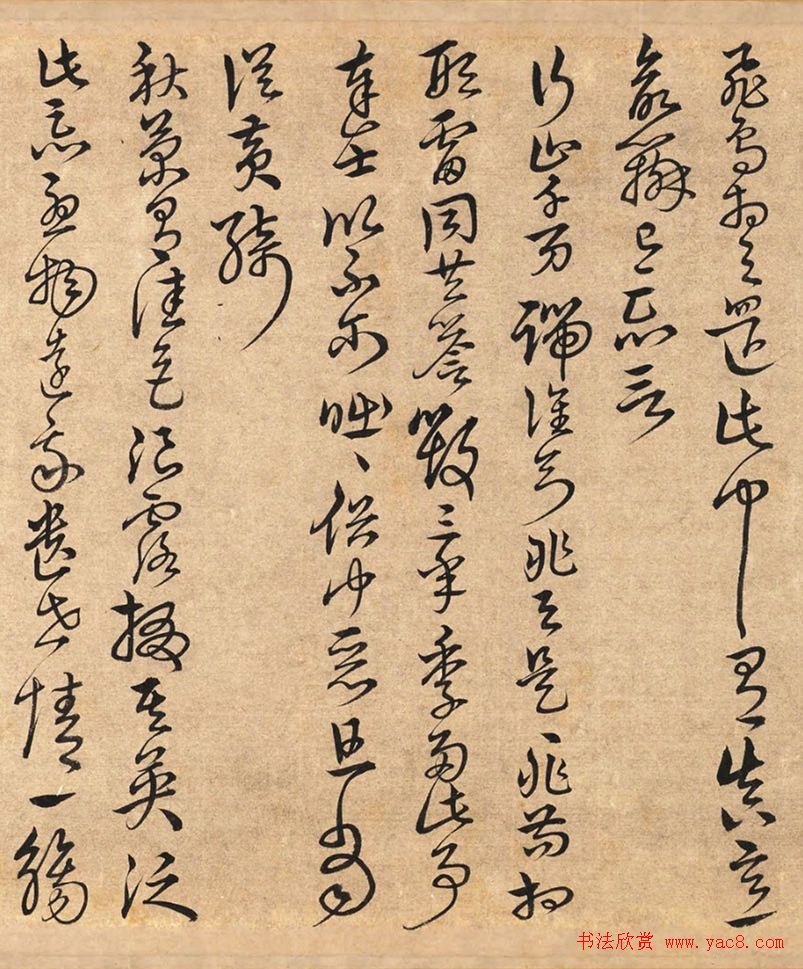 飛鳥相與還此中有真意
欲辯已忘言
行止千万端誰知非与是〻非苟相
形雷同共譽毀三季多此事
達士似不尔咄〻俗中惡且當
從黃綺
秋菊有佳色裛露掇其英泛
此忘憂物遠我遺世情一觴
书法欣赏 www.yac8.com